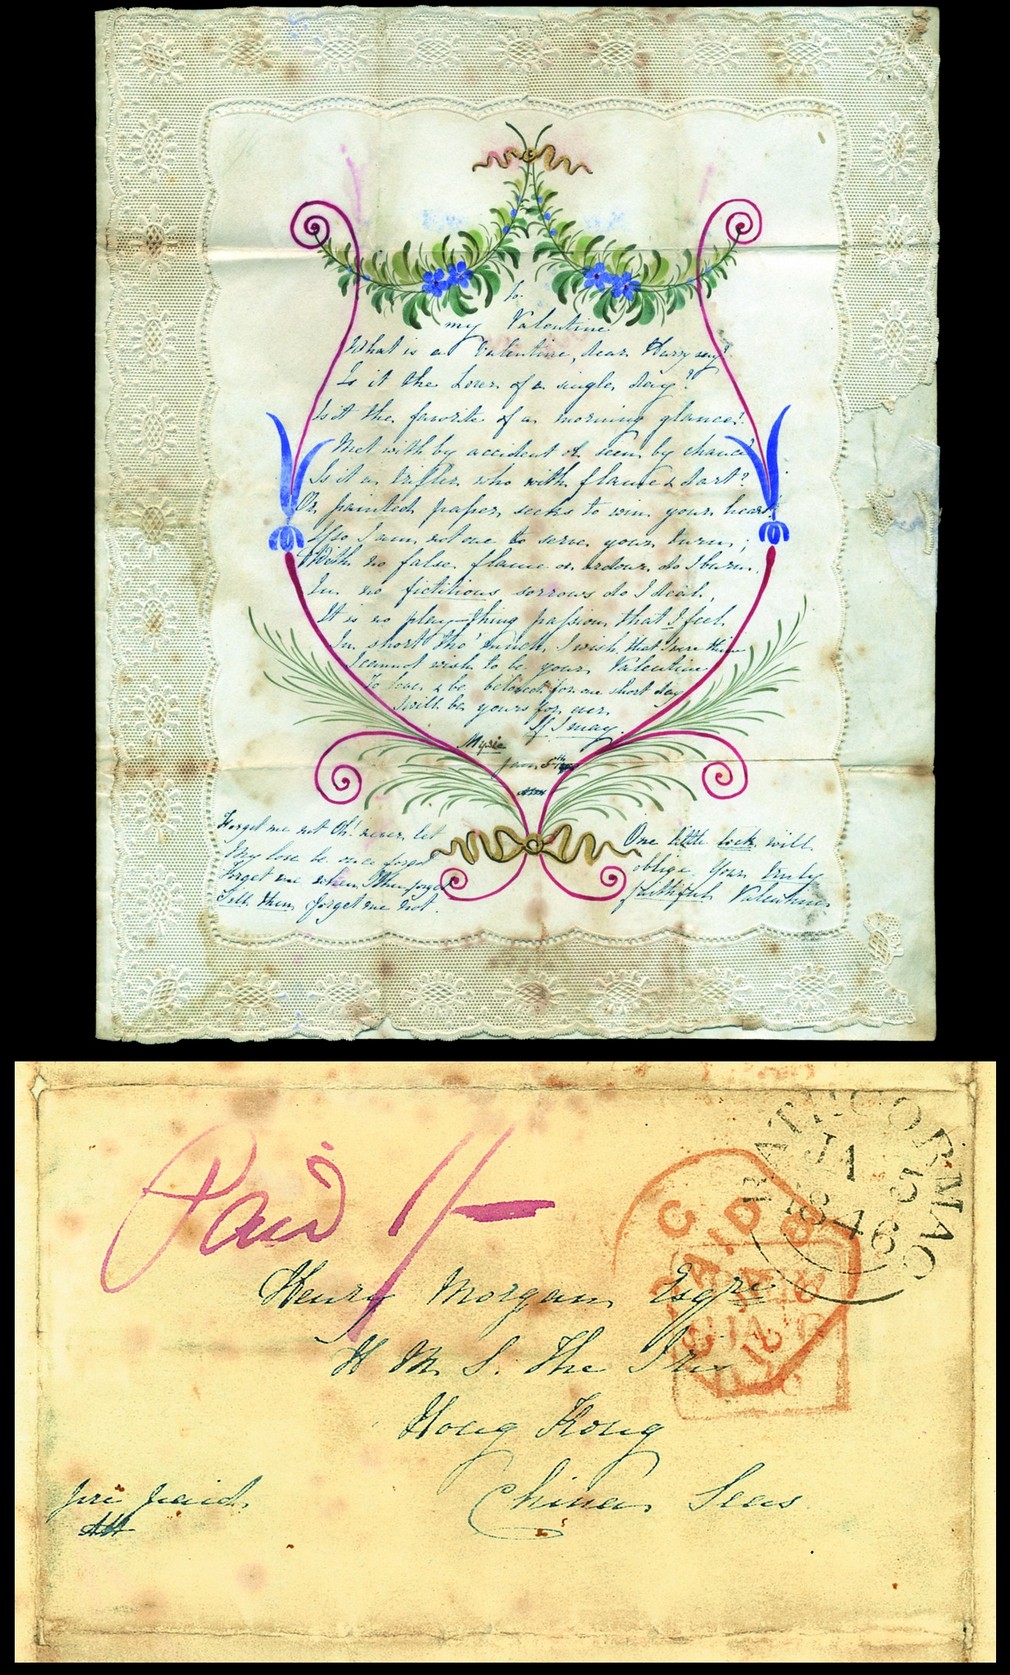 to
my Valentine
What is a Valentine, dear Harry say?
Is it the Lover of a single day?
Is it the favorite of a morning glance?
Met with by accident or seen by chance
Is it a trifler who with flame & dart?
Or painted paper seeks to win your heart
If so I am not one to serve your turn;
With no false flame or ardour do I burn.
In no fictitious sorrows do I deal,
It is no play-thing passion that I feel
In short tho' much I wish that I were thine
I cannot wish to be your Valentine
To love & be beloved for one short day
I will be yours for ever
If I may
Jan. 5th
Forget me not Oh! never let
My love be once forgot
Forget me when I thee forget
Till then forget me not.
One little lock will
oblige Your truly
faithful Valentine
Paid 1/-
RATHCORMAC
JA
5
1846
PAID
Henry Morgan Esqre
H M S. The Iris
Hong Kong
China Seas
pre paid